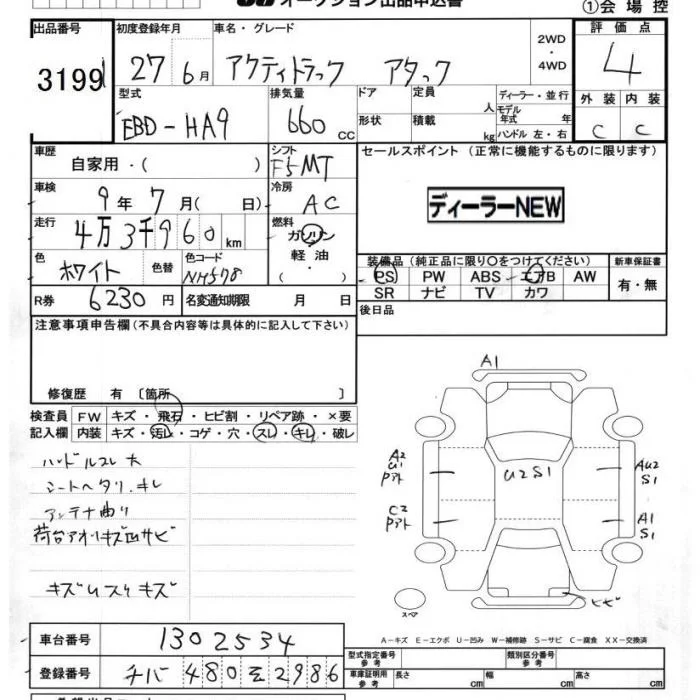 オークション出品申込書
①会場控
出品番号 初度登録年月 車名・グレード 2WD・4WD 評価点
3199 27 6月 アクティトラック アタック 4
型式 排気量 ドア 定員 人 ディーラー・並行 外装 内装
EBD-HA9 660cc 形状 積載 kg モデル年式 年 ハンドル 左・右 C C
車歴 自家用・( ) シフト F5MT セールスポイント(正常に機能するものに限ります)
車検 9年7月( 日) 冷房 AC
ディーラーNEW
走行 4万3千960km 燃料 ガソリン
軽油
・( )
色 ホワイト 色替 色コード NH578
装備品(純正品に限り○をつけてください) 新車保証書
PS PW ABS エアB AW 有・無
SR ナビ TV カワ
R券 6230円 名変通知期限 月 日 後日品
注意事項申告欄(不具合内容等は具体的に記入して下さい)
修復歴 有〔箇所 〕
検査員 FW キズ・飛石・ヒビ割・リペア跡・×要
記入欄 内装 キズ・汚レ・コゲ・穴・スレ・キレ・破レ
ハンドルスレ大
シートヘタリ.キレ
アンテナ曲り
荷台アオリキズ凹サビ
A1
A2
U1
U2S1
AU2
S1
C2
A1
S1
スペア
ヒビ
A-キズ E-エクボ U-凹み W-補修跡 S-サビ C-腐食 XX-交換済
車台番号 1302534
型式指定番号 参考 類別区分番号 参考
登録番号 チバ 480 を 2986
車庫証明用 参考 長さ cm 幅 cm 高さ cm